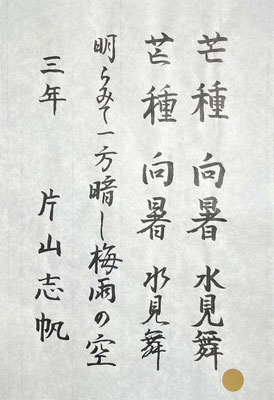 芒種 向暑 水見舞
芒種 向暑 水見舞
明らみて一方暗し梅雨の空
三年 片山志帆